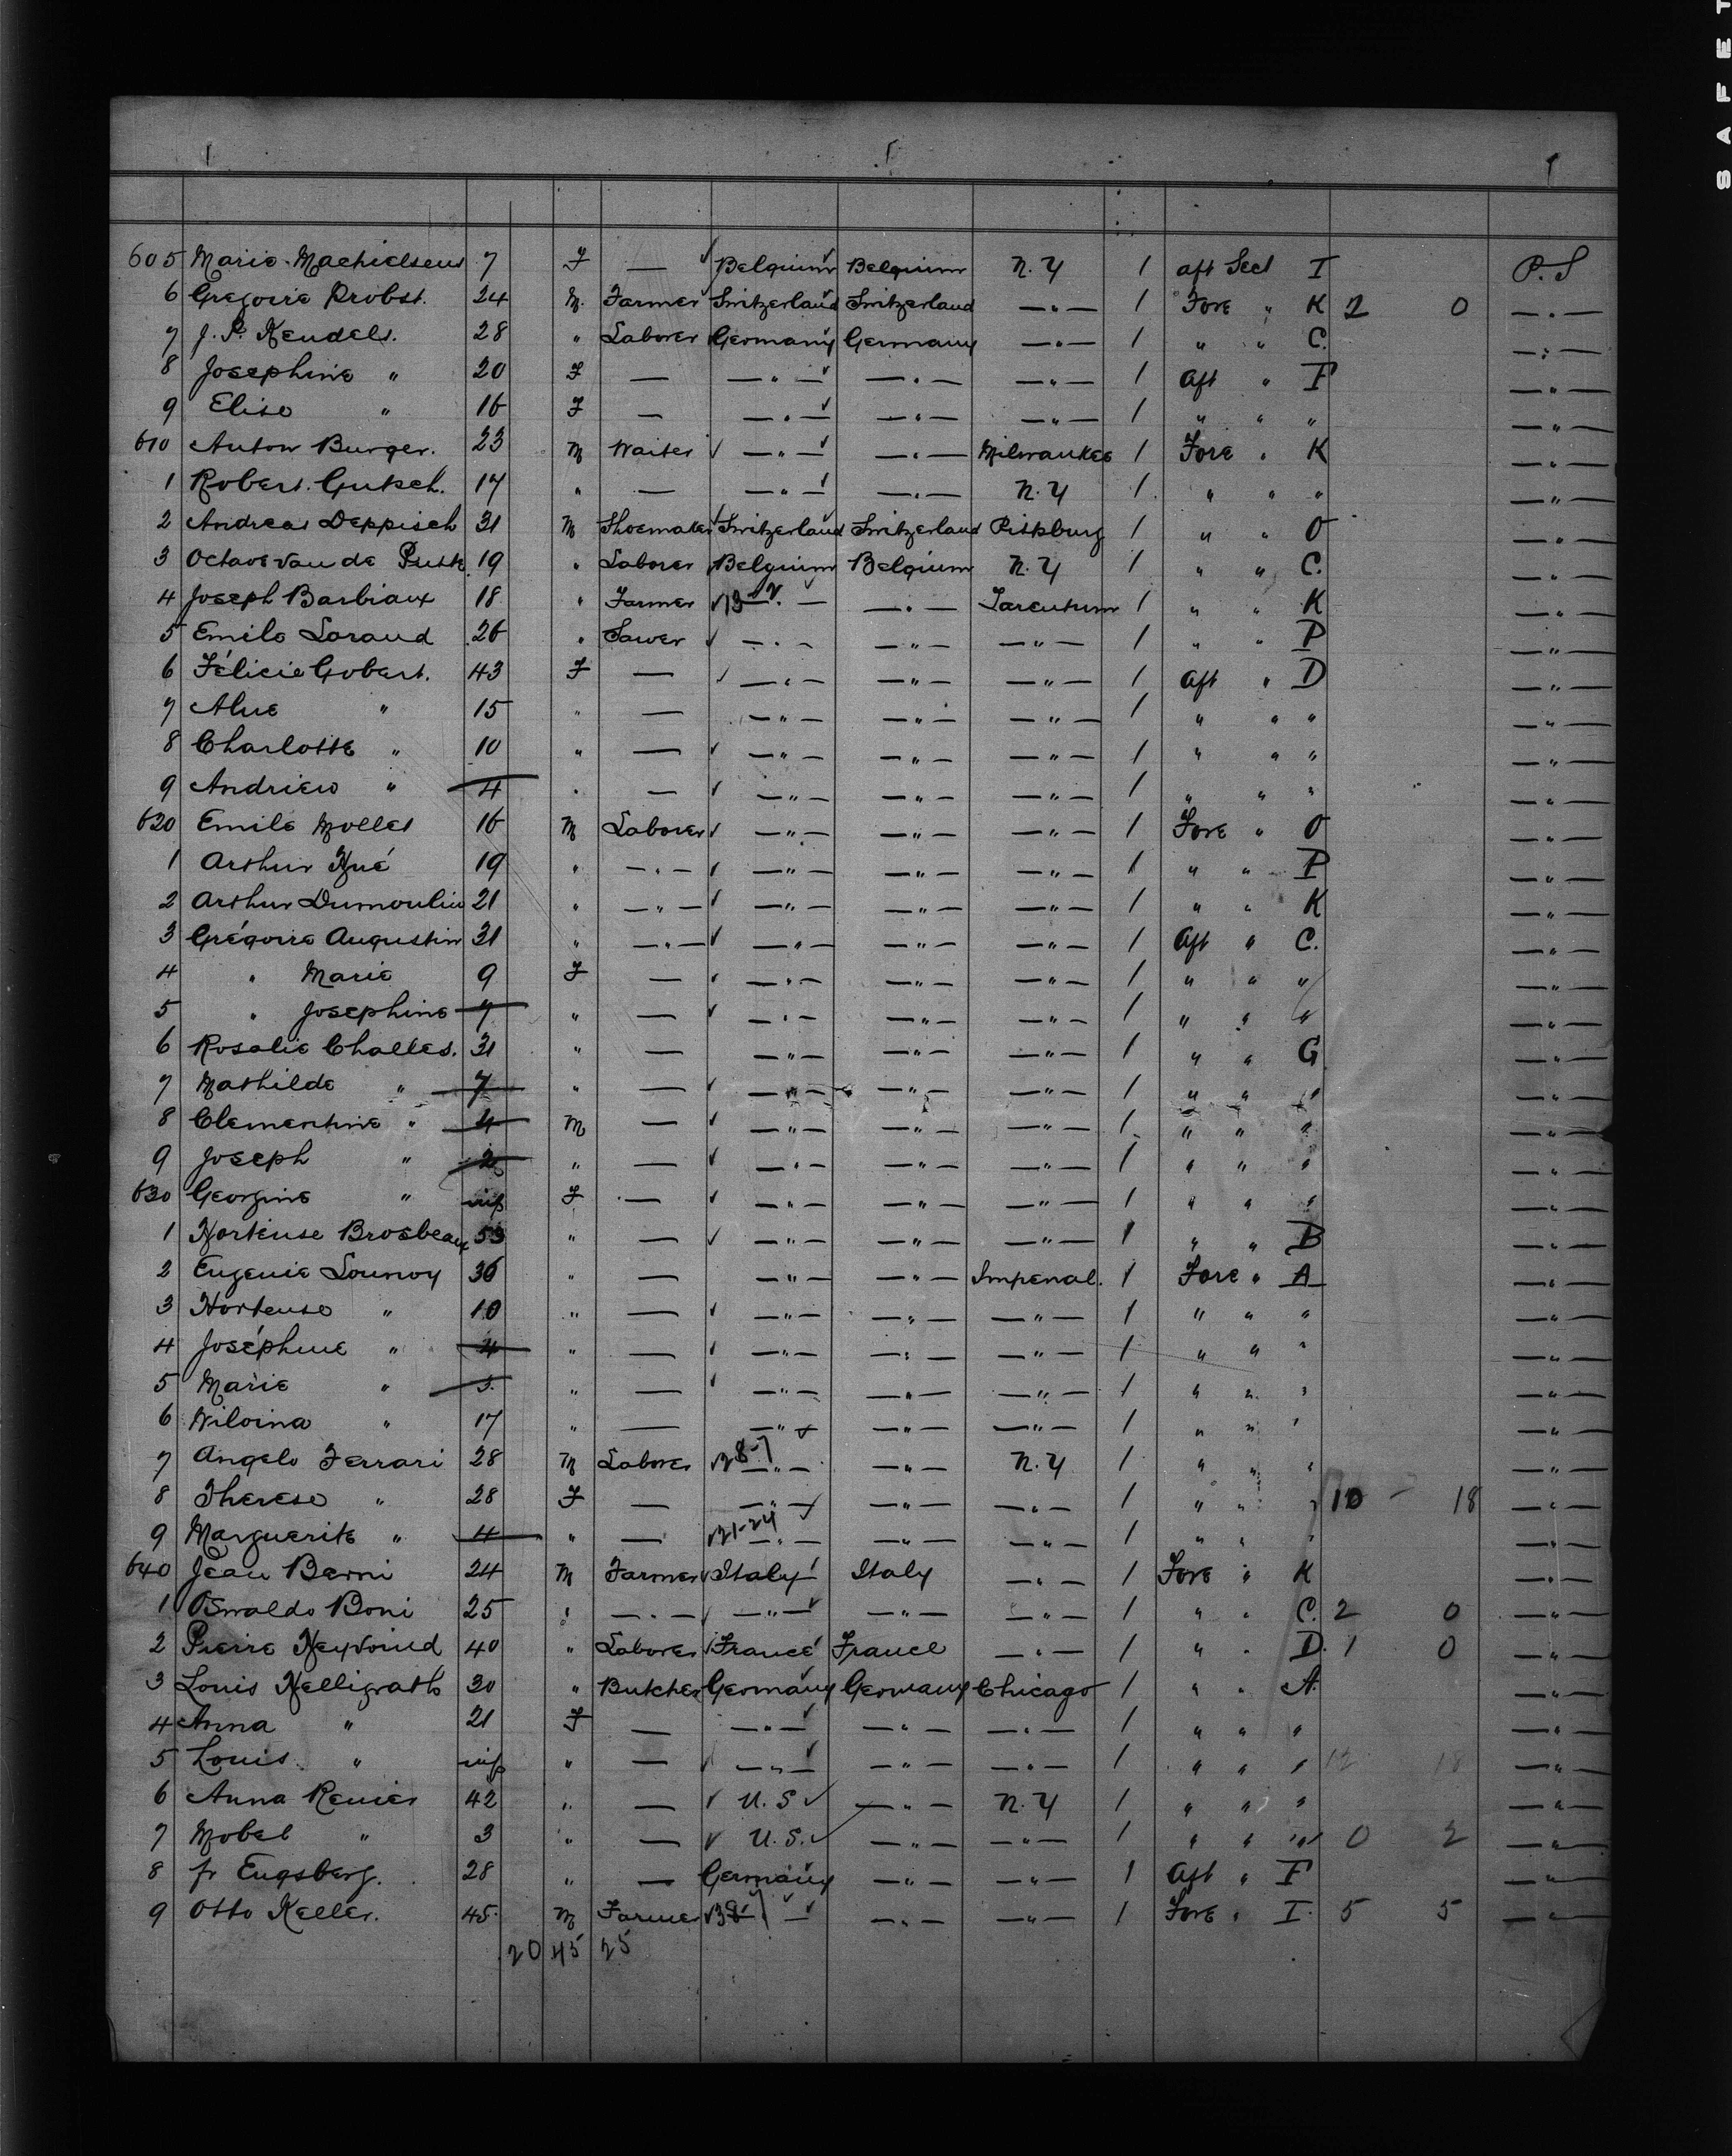 SAFET
1 1 1
605 Marie Machielsens 7 F — Belgium Belgium N.Y 1 aft Sect I P.S
6 Gregoire Probst. 24 M. Farmer Switzerland Switzerland —"— 1 Fore " K 2 0 —"—
7 J. P. Kendels. 28 " Laborer Germany Germany —"— 1 " " C. —"—
8 Josephine " 20 F — —"— —"— —"— 1 Aft " F —"—
9 Elise " 16 F — —"— —"— —"— 1 " " " —"—
610 Anton Burger. 23 M Waiter —"— —"— Milwaukee 1 Fore " K —"—
1 Robert Gutsch. 17 " — —"— —"— N.Y 1 " " " —"—
2 Andreas Deppisch 31 M Shoemaker Switzerland Switzerland Pittsburg 1 " " O —"—
3 Octave van de Putte 19 " Laborer Belgium Belgium N.Y 1 " " C. —"—
4 Joseph Barbiaux 18 " Farmer —"— —"— Tarentum 1 " " K —"—
5 Emile Loraud 26 " Sawer —"— —"— —"— 1 " " P —"—
6 Félicie Gobert. 43 F — —"— —"— —"— 1 Aft " D —"—
7 Aline " 15 " — —"— —"— —"— 1 " " " —"—
8 Charlotte " 10 " — —"— —"— —"— 1 " " " —"—
9 Andrieu " 4 " — —"— —"— —"— 1 " " " —"—
620 Emile Mollet 16 M Laborer —"— —"— —"— 1 Fore " O —"—
1 Arthur Hué 19 " —"— —"— —"— —"— 1 " " P —"—
2 Arthur Dumoulin 21 " —"— —"— —"— —"— 1 " " K —"—
3 Grégoire Augustin 31 " —"— —"— —"— —"— 1 Aft " C. —"—
4 " Marie 9 F — —"— —"— —"— 1 " " " —"—
5 " Josephine 7 " — —"— —"— —"— 1 " " " —"—
6 Rosalie Challes. 31 " — —"— —"— —"— 1 " " G —"—
7 Mathilde " 7 " — —"— —"— —"— 1 " " " —"—
8 Clementine " 4 M — —"— —"— —"— 1 " " " —"—
9 Joseph " 2 " — —"— —"— —"— 1 " " " —"—
630 Georgine " inf F — —"— —"— —"— 1 " " " —"—
1 Hortense Brosbeaux 53 " — —"— —"— —"— 1 " " B —"—
2 Eugenie Lounoy 36 " — —"— —"— Imperial. 1 Fore " A —"—
3 Hortense " 10 " — —"— —"— —"— 1 " " " —"—
4 Joséphine " 4 " — —"— —"— —"— 1 " " " —"—
5 Marie " 3 " — —"— —"— —"— 1 " " " —"—
6 Wilvina " 17 " — —"— —"— —"— 1 " " " —"—
7 Angelo Ferrari 28 M Laborer —"— —"— N.Y 1 " " " —"—
8 Therese " 28 F — —"— —"— —"— 1 " " " 10 - 18 —"—
9 Marguerite " 4 " — 21-24 —"— —"— —"— 1 " " " —"—
640 Jean Berni 24 M Farmer Italy Italy —"— 1 Fore " K —"—
1 Oswaldo Boni 25 " —"— —"— —"— —"— 1 " " C. 2 0 —"—
2 Pierre 40 " Laborer France France —"— 1 " " D. 1 0 —"—
3 Louis Helligrath 30 " Butcher Germany Germany Chicago 1 " " A —"—
4 Anna " 21 F — —"— —"— —"— 1 " " " —"—
5 Louis " inf " — —"— —"— —"— 1 " " " 12 18 —"—
6 Anna Renier 42 " — U.S —"— N.Y 1 " " " —"—
7 Mobel " 3 " — U.S. —"— —"— 1 " " " 0 2 —"—
8 fr Engsberg. 28 " — Germany —"— —"— 1 Aft " F —"—
9 Otto Keller. 45 M Farmer —"— —"— —"— 1 Fore " I. 5 5 —"—
20 45 25